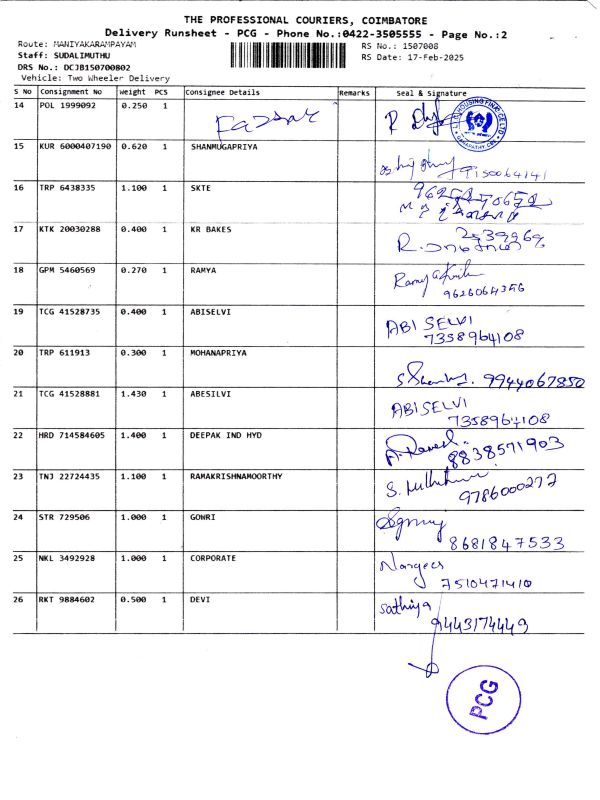 THE PROFESSIONAL COURIERS, COIMBATORE
Delivery Runsheet - PCG - Phone No.:0422-3505555 - Page No.:2
Route: MANIYAKARAMPAYAM
RS No.: 1507008
Staff: SUDALIMUTHU
RS Date: 17-Feb-2025
DRS No.: DCJB150700802
Vehicle: Two Wheeler Delivery
S No Consignment No Weight PCS Consignee Details Remarks Seal & Signature
14 POL 1999092 0.250 1
15 KUR 6000407190 0.620 1 SHANMUGAPRIYA
9150064141
16 TRP 6438335 1.100 1 SKTE
17 KTK 20030288 0.400 1 KR BAKES
18 GPM 5460569 0.270 1 RAMYA
9626064356
19 TCG 41528735 0.400 1 ABISELVI ABI SELVI
7358964108
20 TRP 611913 0.300 1 MOHANAPRIYA
9944067850
21 TCG 41528881 1.430 1 ABESILVI ABI SELVI
7358964108
22 HRD 714584605 1.400 1 DEEPAK IND HYD
8838571903
23 TNJ 22724435 1.100 1 RAMAKRISHNAMOORTHY
9786000277
24 STR 729506 1.000 1 GOWRI
8681847533
25 NKL 3492928 1.000 1 CORPORATE Nargees
7510471410
26 RKT 9884602 0.500 1 DEVI Sathiya
9443174449
PCG